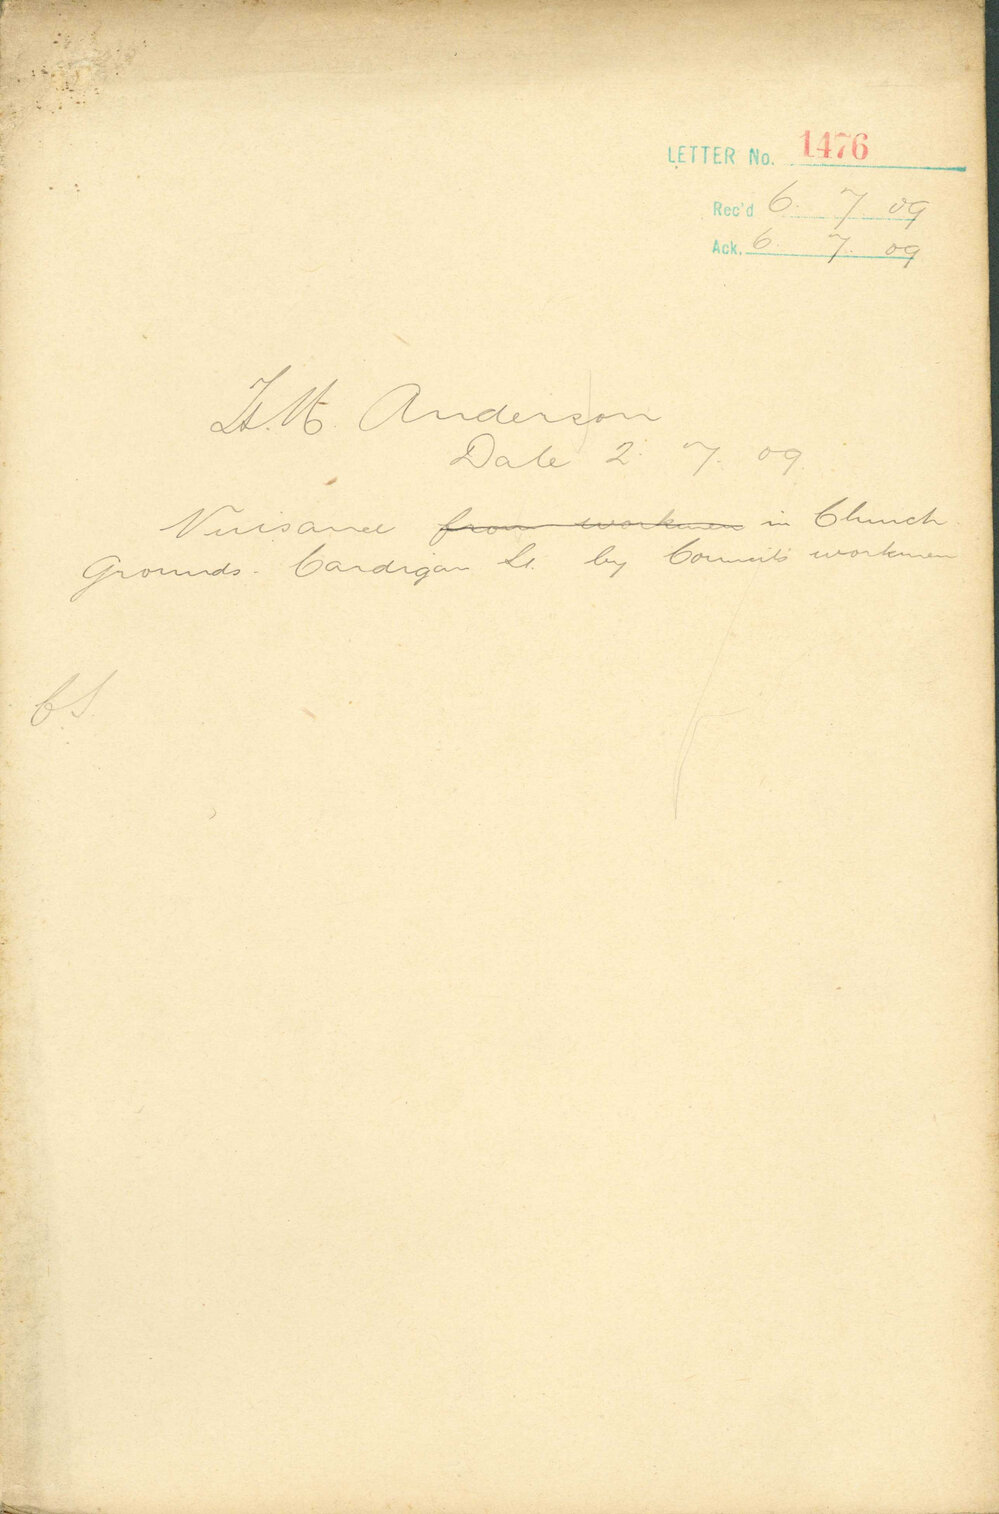 LETTER No. 1476
Rec'd 6. 7. 09
Ack. 6. 7. 09
Anderson
Date 2. 7. 09.
Nuisance from workmen in Church
Grounds. Cardigan St. by Council's workmen
CS